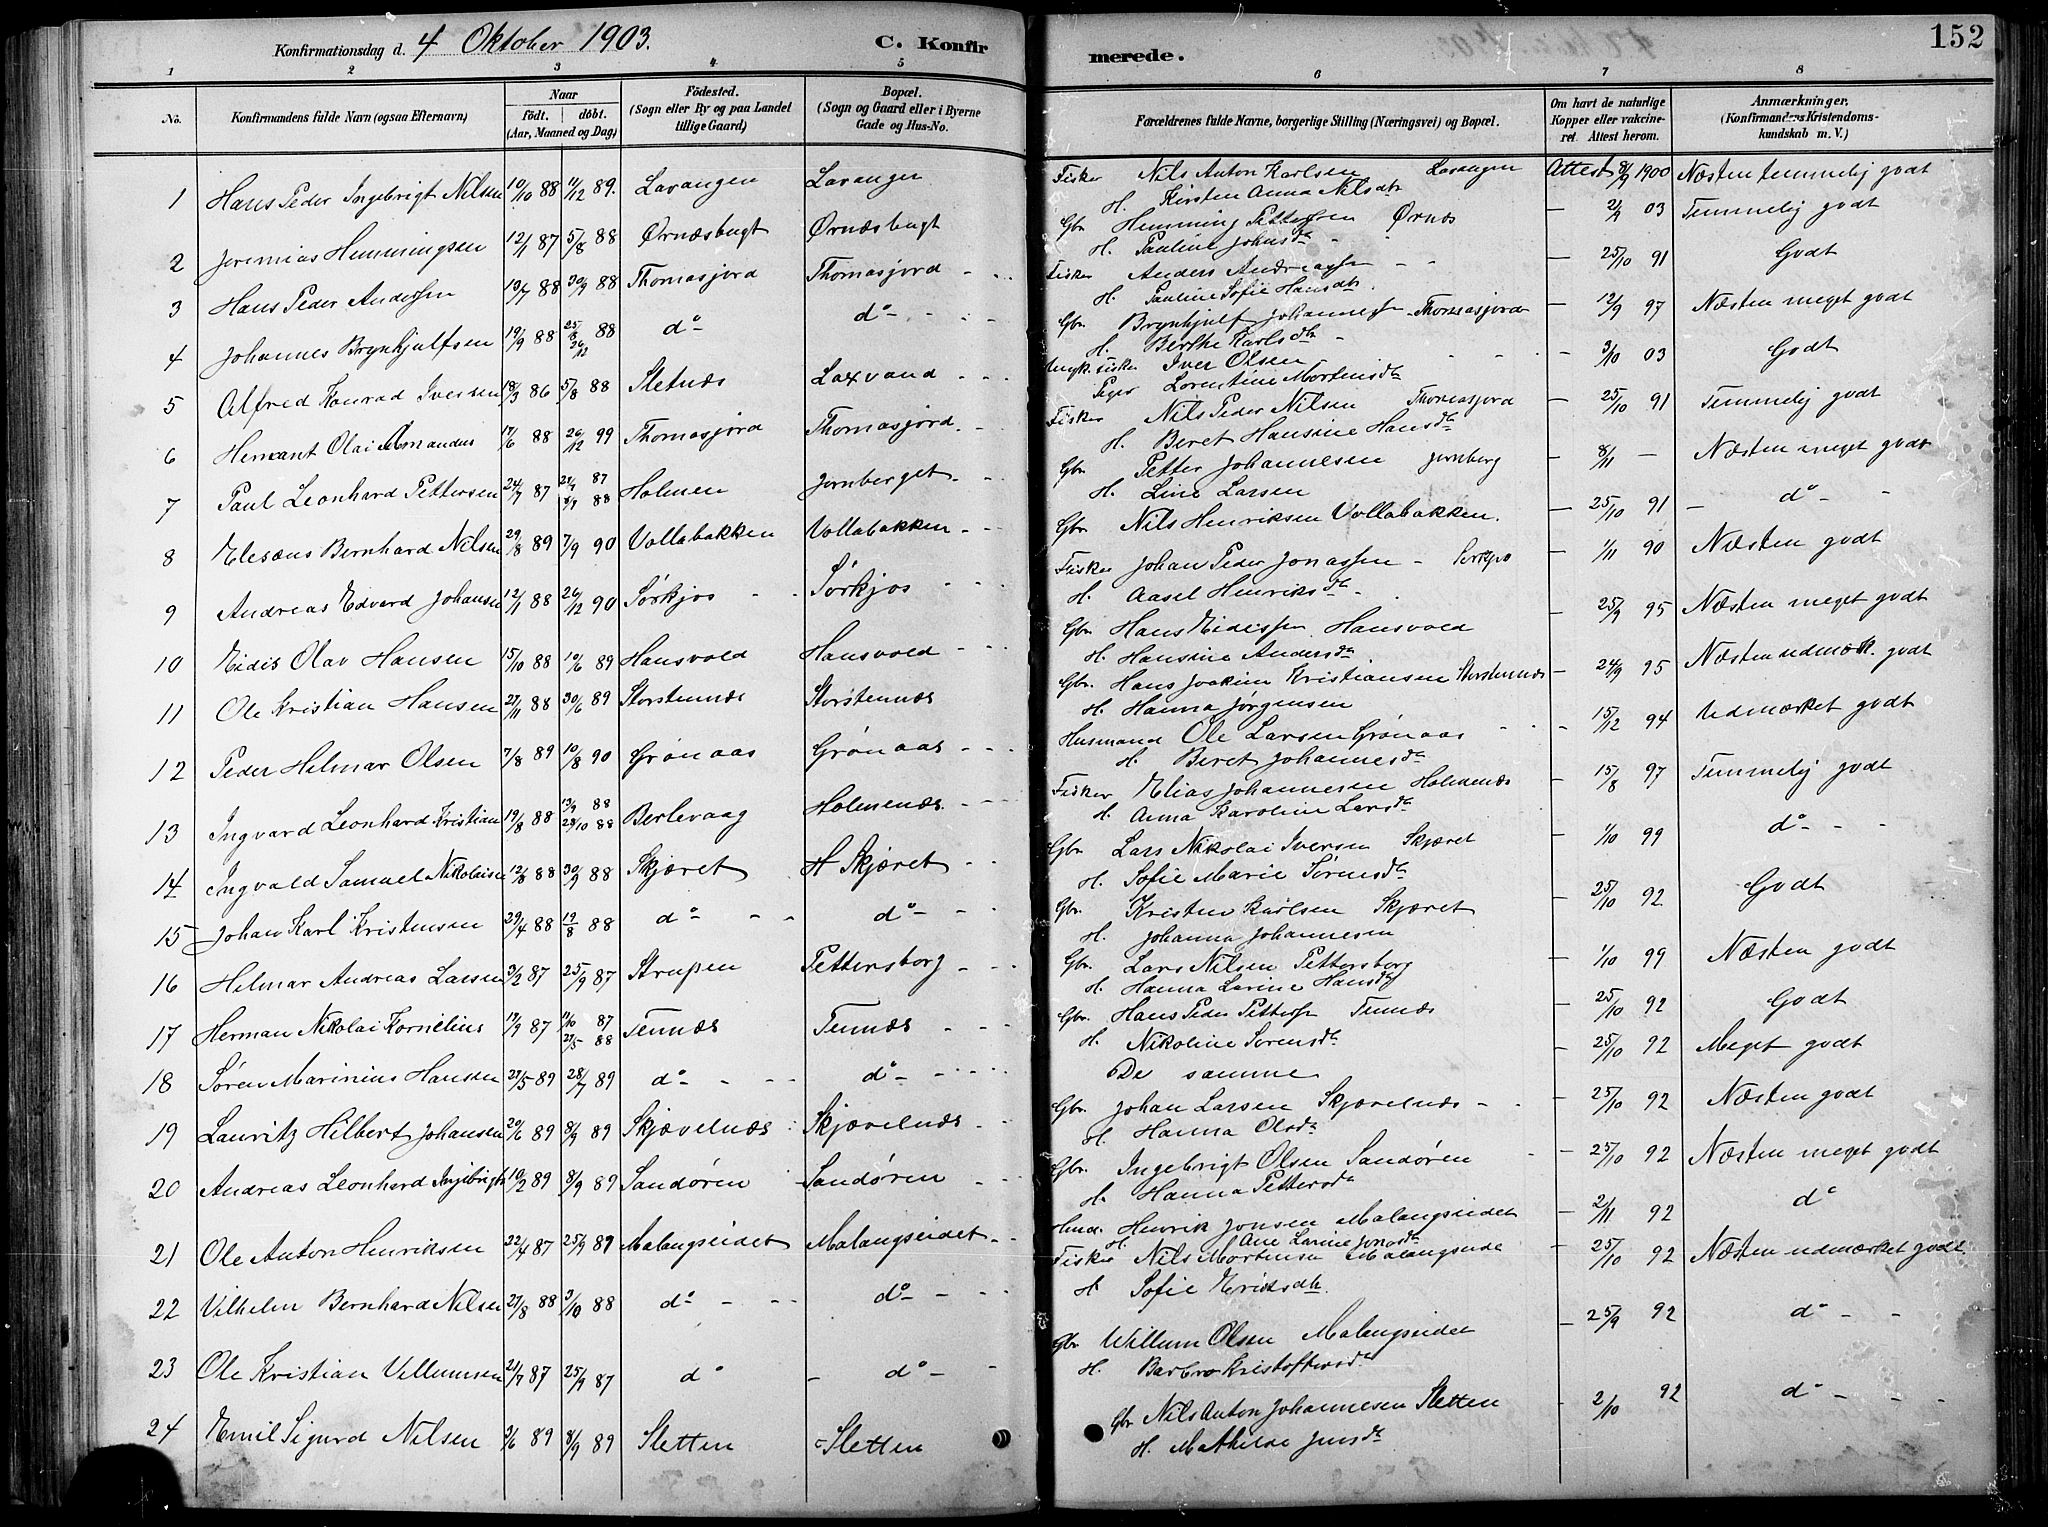 Konfirmationsdag d. 4 Oktober 1903. C. Konfirmerede. 152
1 2 3 4 5 6 7 8
No. Konfirmandens fulde Navn (ogsaa Efternavn) Naar født. døbt. (Aar, Maaned og Dag) Fødested. (Sogn eller By og paa Landet tillige Gaard) Bopæl. (Sogn og Gaard eller i Byerne Gade og Hus-No. Forældrenes fulde Navne, borgerlige Stilling (Næringsvei) og Bopæl. Om havt de naturlige Kopper eller vakcineret. Attest herom. Anmærkninger. (Konfirmandens Kristendomskundskab m. V.)
1 Hans Peder Ingebrigt Nilsen 10/10 88 11/12 89. Lavangen Lavangen Fisker Nils Anton Karlsen Lavangen Attest 8/9 1900 Næsten temmelig godt
H. Kirsten Anna Nilsdtr
2 Jeremias Hemmingsen 12/1 87 5/8 88 Ørnæsbugt Ørnæsbugt Gbr Hemming Pettersen Ørnæs — 2/9 03 Temmelig godt
H. Pauline Johnsdr
3 Hans Peder Andersen 13/7 88 30/9 88 Thomasjord Thomasjord Fisker Anders Andreassen — 25/10 91 Godt
H. Pauline Sofie Hansdtr.
4 Johannes Brynhjulfsen 19/9 88 88 do do Gbr. Brynhjulf Johannessen Thomasjord — 12/9 97 Næsten meget godt
H. Berthe Karlsdtr
5 Alfred Konrad Iversen 18/3 86 5/8 88 Sletnæs Laxvand Ungk. fisker Iver Olsen — 3/10 03 Godt
Pige Lorentine Mortensdtr
6 Hemant Olai Amandus 17/6 88 26/12 99 Thomasjord Thomasjord. Fisker Nils Peder Nilsen Thomasjord — 25/10 91 Temmelig godt
H. Beret Hansine Hansdr
7 Paul Leonhard Pettersen 24/7 87 87 88 Holmen Jernberget Gbr Petter Johannesen Jernberg — 8/11 — Næsten meget godt
H. Line Larsen
8 Elesæus Bernhard Nilsen 29/8 89 7/9 90 Vollabakken Vollabakken Gbr. Nils Henriksen Vollabakken. — 25/10 91 — do
9 Andreas Edvard Johansen 12/11 88 26/12 90 Sørkjos Sørkjos Fisker Johan Peder Jonassen — 1/11 90 Næsten godt
H. Aasel Henriksdr
10 Eidis Olav Hansen 15/10 88 10/6 89 Hansvold Hansvold Gbr Hans Eidissen Hansvold 25/9 95 Næsten meget godt
H. Hansine Andersdr
11 Ole Kristian Hansen 27/11 88 30/6 89 Storstennæs Storstennæs Gbr. Hans Joakim Kristiansen Storstennæs — 24/9 95 Næsten udmærk. godt
H. Hanna Jørgensen
12 Peder Hilmar Olsen 7/8 89 10/8 90 Grønaas Grønaas Husmand Ole Larsen Grønaas 15/12 94 Udmærket godt
H. Beret Johannesdr
13 Ingvard Leonhard Kristian 19/8 88 13/9 88 28/10 88 Berlevaag Holmenæs Fisker Elias Johannesen Holmenæs — 15/8 97 Temmelig godt
H. Anna Karoline Larsdr
14 Ingvald Samuel Nikolaisen 12/8 88 30/9 88 Skjæret Skjæret Gbr. Lars Nikolai Iversen Skjæret — 1/10 99 do
H. Sofie Marie Sørensdr
15 Johan Karl Kristensen 29/4 88 19/8 88 do do Gbr. Kristen Karlsen Skjæret — 25/10 92 Godt
H. Johanna Johannesen
16 Hilmar Andreas Larsen 3/2 87 25/9 87 Strupen Pettersborg Gbr. Lars Nilsen Pettersborg — 1/10 99 Næsten godt
H. Hanna Larine Hansdr
17 Herman Nikolai Kornelius 19/9 87 11/10 87 27/5 88 Tennæs Tennæs Gbr. Hans Peder Petters Tennæs — 25/10 92 Godt
H. Nikoline Sørensdr
18 Søren Marinius Hansen 27/5 89 28/7 89 do do De samme — 25/10 92 Meget godt
19 Lauritz Hilbert Johansen 20/6 89 8/9 89 Skjævelnæs Skjævelnæs Gbr. Johan Larsen Skjævelnæs — 25/10 92 Næsten godt
H. Hanna Olsdr
20 Andreas Leonhard Ingebrigts 10/2 89 8/9 89 Sandøren Sandøren Gbr. Ingebrigt Olsen Sandøren — 25/10 92 Næsten meget godt
H. Hanna Pettersdr
21 Ole Anton Henriksen 22/4 87 25/9 89 Malangseidet Malangseidet Husm. Henrik Jonsen Malangseidet — 2/11 92 do
H. Ane Larine Jonsdr
22 Vilhelm Bernhard Nilsen 27/8 88 3/10 88 do do Fisker Nils Mortensen Malangseide — 25/10 92 Næsten udmærket godt.
H. Sofie Eriksdtr.
23 Ole Kristian Villumsen 21/7 87 25/9 87 do — do — Gbr Willum Olsen Malangseidet — 25/9 92 do
H. Barbro Kristoffersdr
24 Emil Sigurd Nilsen 3/6 89 8/9 89 Sletten Sletten Gbr Nils Anton Johannesen Sletten — 2/10 92 do
H. Mathilde Jensdr